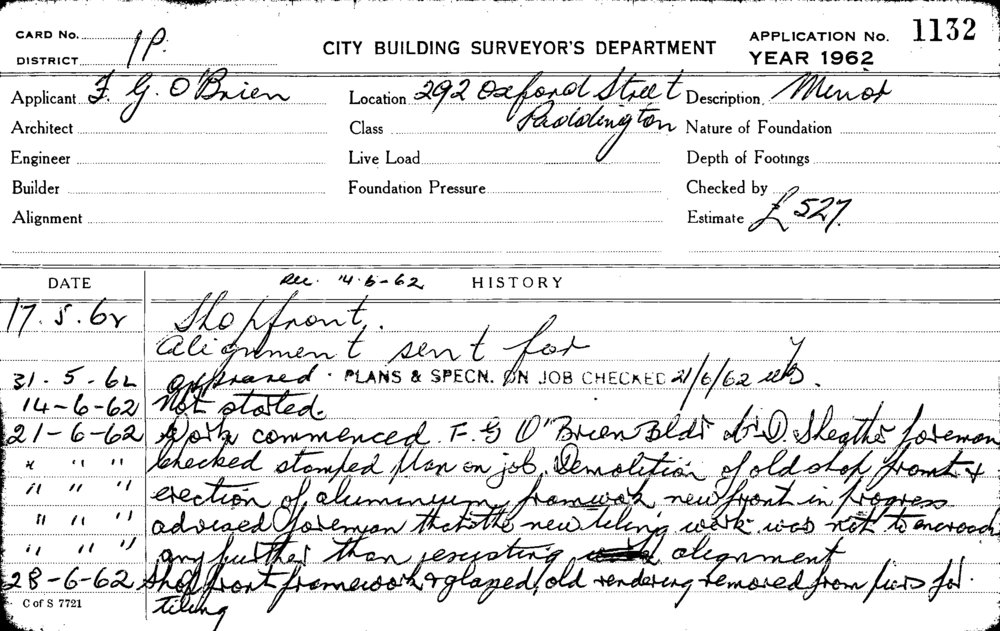 CARD No. 1P. CITY BUILDING SURVEYOR'S DEPARTMENT APPLICATION No. 1132
DISTRICT YEAR 1962
Applicant F. G. O'Brien Location 292 Oxford Street Description Minor
Architect Class Paddington Nature of Foundation
Engineer Live Load Depth of Footings
Builder Foundation Pressure Checked by
Alignment Estimate £527.
DATE Rec. 14-6-62 HISTORY
17.5.62 Shopfront.
Alignment sent for
31.5.62 approved. PLANS & SPECN. ON JOB CHECKED 21/6/62
14-6-62 Not started.
21-6-62 Work commenced. F. G O'Brien Bldr Mr D. Sheather foreman
" " " Checked stamped plan on job. Demolition of old shop front &
" " " erection of aluminium framework new front in progress
" " " advised foreman that the new tiling work was not to encroach
" " " any further than jexisting alignment
28-6-62 Shop front framework & glazed, old rendering removed from piers for
C of S 7721 tiling